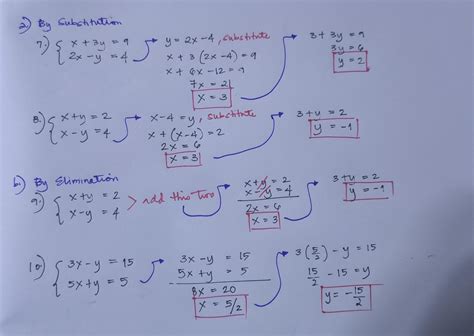 2) By Substitution
7.) { x + 3y = 9
2x - y = 4
y = 2x - 4, substitute
x + 3 (2x - 4) = 9
x + 6x - 12 = 9
7x = 21
x = 3
3 + 3y = 9
3y = 6
y = 2
8.) { x + y = 2
x - y = 4
x - 4 = y, substitute
x + (x - 4) = 2
2x = 6
x = 3
3 + y = 2
y = -1
b) By Elimination
9.) { x + y = 2
x - y = 4
> add this two
x + y = 2
x - y = 4
2x = 6
x = 3
3 + y = 2
y = -1
10) { 3x - y = 15
5x + y = 5
3x - y = 15
5x + y = 5
8x = 20
x = 5/2
3 (5/2) - y = 15
15/2 - 15 = y
y = - 15/2